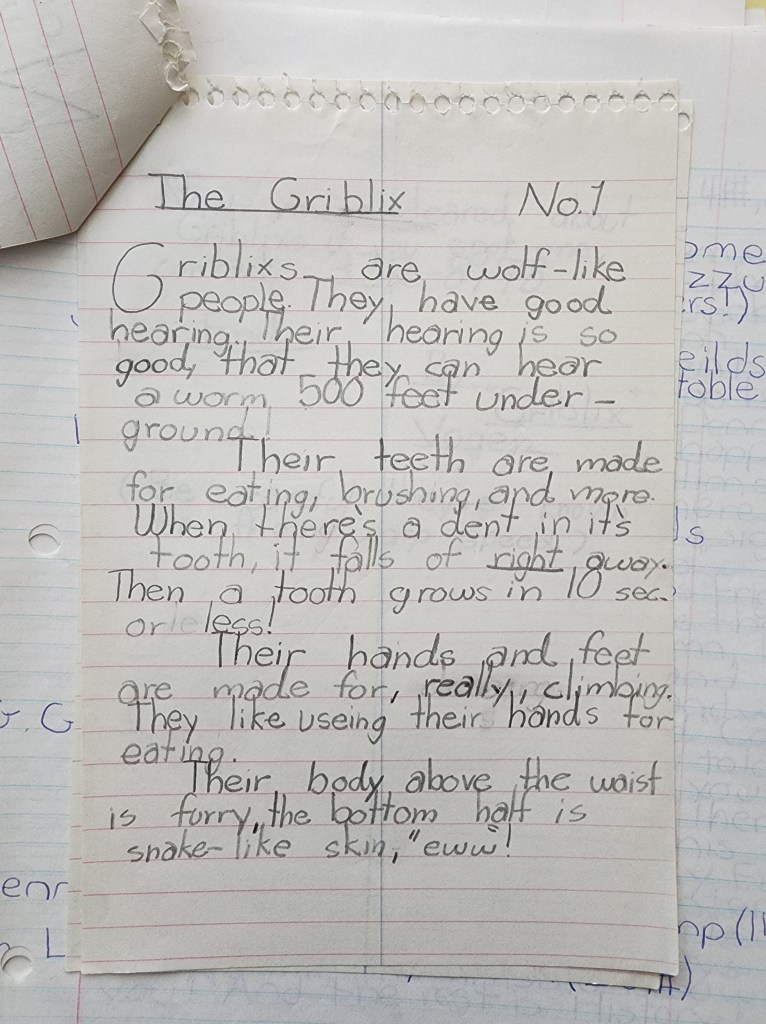 The Griblix No.1
Griblixs are wolf-like
people. They have good
hearing. Their hearing is so
good, that they can hear
a worm 500 feet under-
ground!
Their teeth are made
for eating, brushing, and more.
When there's a dent in it's
tooth, it falls of right away.
Then a tooth grows in 10 sec.
or less!
Their hands and feet
are made for, really, climbing.
They like useing their hands for
eating.
Their body above the waist
is furry, the bottom half is
snake-like skin, "eww"!